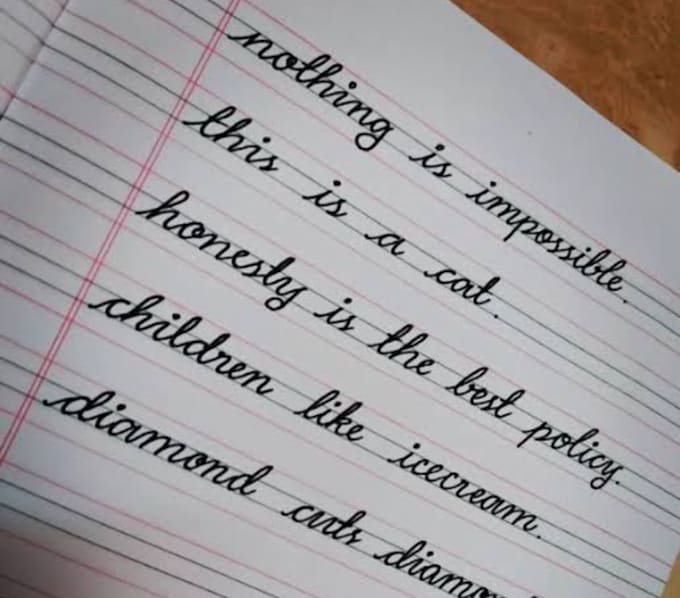 nothing is impossible.
this is a cat.
honesty is the best policy.
children like icecream.
diamond cuts